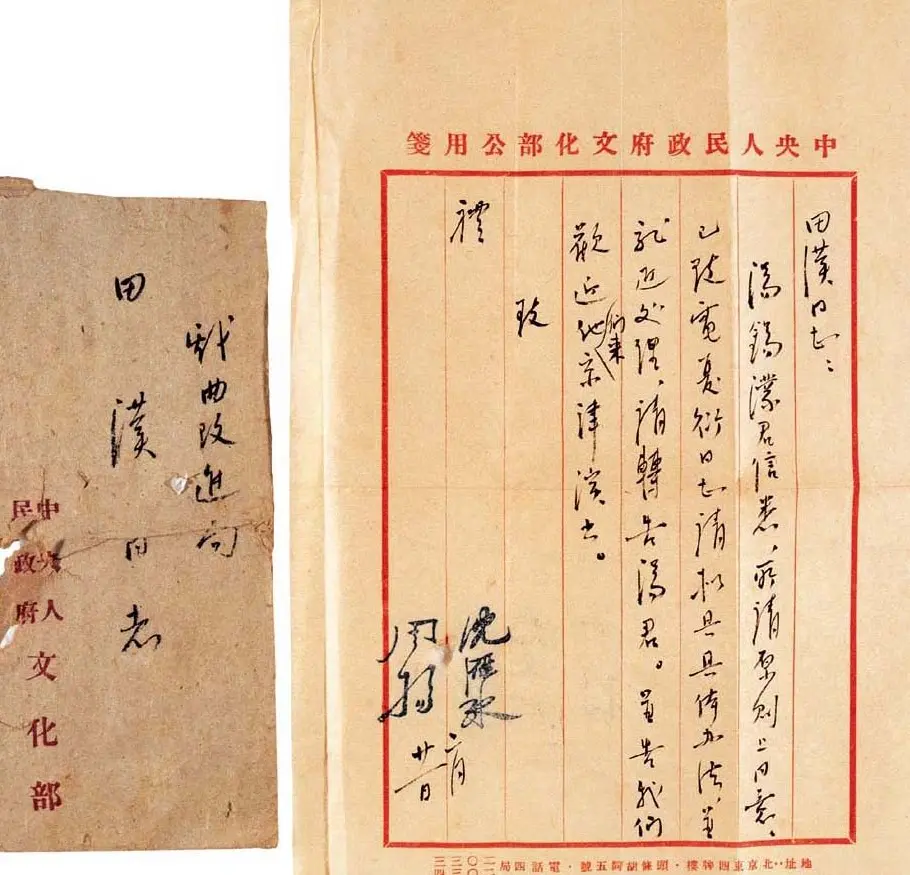 中央人民政府文化部公用箋
田漢同志：
湯君信悉，所請原则上同意，
已致電夏衍同志請拟具具体办法，並
就近处理，請轉告湯君。並告我們
歡迎他們来京津演出。
致
禮
沈雁冰
周扬
二月
地址：北京東四牌樓·頭條胡同五號·電話四局
戏曲改進局
田漢同志
中央人民政府文化部